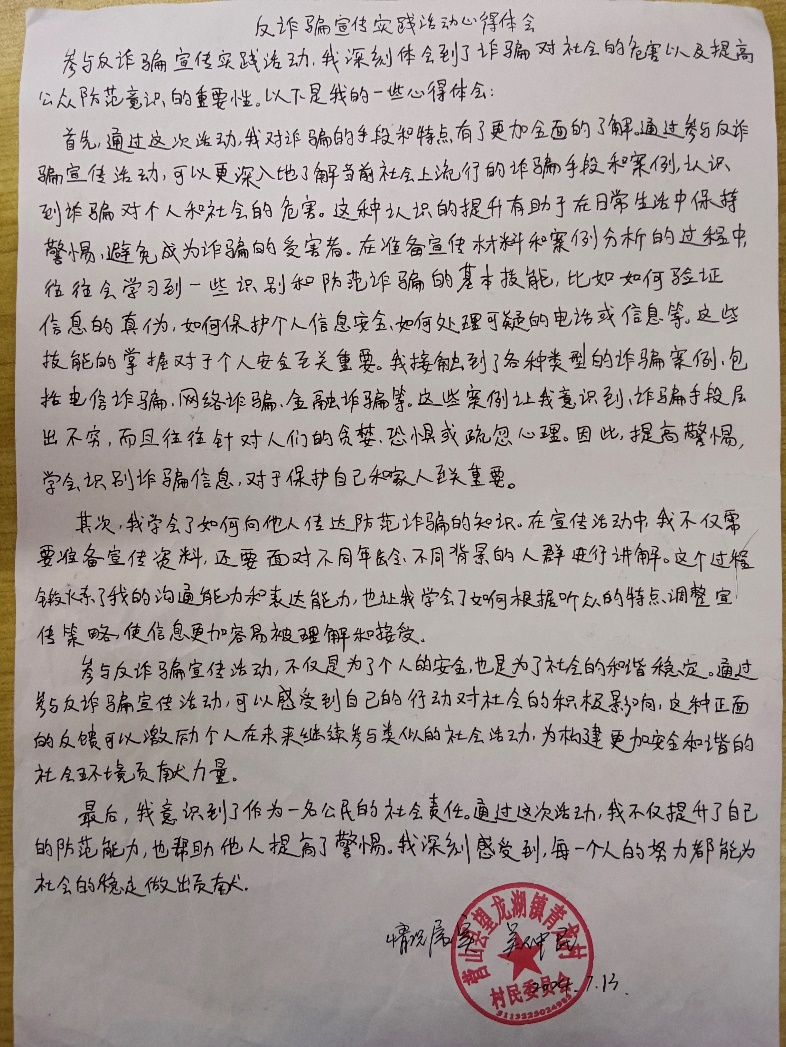 反诈骗宣传实践活动心得体会
参与反诈骗宣传实践活动,我深刻体会到了诈骗对社会的危害以及提高
公众防范意识的重要性。以下是我的一些心得体会:
首先,通过这次活动,我对诈骗的手段和特点有了更加全面的了解。通过参与反诈
骗宣传活动,可以更深入地了解当前社会上流行的诈骗手段和案例,认识
到诈骗对个人和社会的危害。这种认识的提升有助于在日常生活中保持
警惕,避免成为诈骗的受害者。在准备宣传材料和案例分析的过程中,
往往会学习到一些识别和防范诈骗的基本技能,比如如何验证
信息的真伪,如何保护个人信息安全,如何处理可疑的电话或信息等。这些
技能的掌握对于个人安全至关重要。我接触到了各种类型的诈骗案例,包
括电信诈骗、网络诈骗、金融诈骗等。这些案例让我意识到,诈骗手段层
出不穷,而且往往针对人们的贪婪、恐惧或疏忽心理。因此,提高警惕,
学会识别诈骗信息,对于保护自己和家人至关重要。
其次,我学会了如何向他人传达防范诈骗的知识。在宣传活动中,我不仅需
要准备宣传资料,还要面对不同年龄、不同背景的人群进行讲解。这个过程
锻炼了我的沟通能力和表达能力,也让我学会了如何根据听众的特点调整宣
传策略,使信息更加容易被理解和接受。
参与反诈骗宣传活动,不仅是为了个人的安全,也是为了社会的和谐稳定。通过
参与反诈骗宣传活动,可以感受到自己的行动对社会的积极影响,这种正面
的反馈可以激励个人在未来继续参与类似的社会活动,为构建更加安全和谐的
社会环境贡献力量。
最后,我意识到了作为一名公民的社会责任。通过这次活动,我不仅提升了自己
的防范能力,也帮助他人提高了警惕。我深刻感受到,每一个人的努力都能为
社会的稳定做出贡献。
情况属实
县望龙湖镇青龙村
村民委员会
2024.7.13.